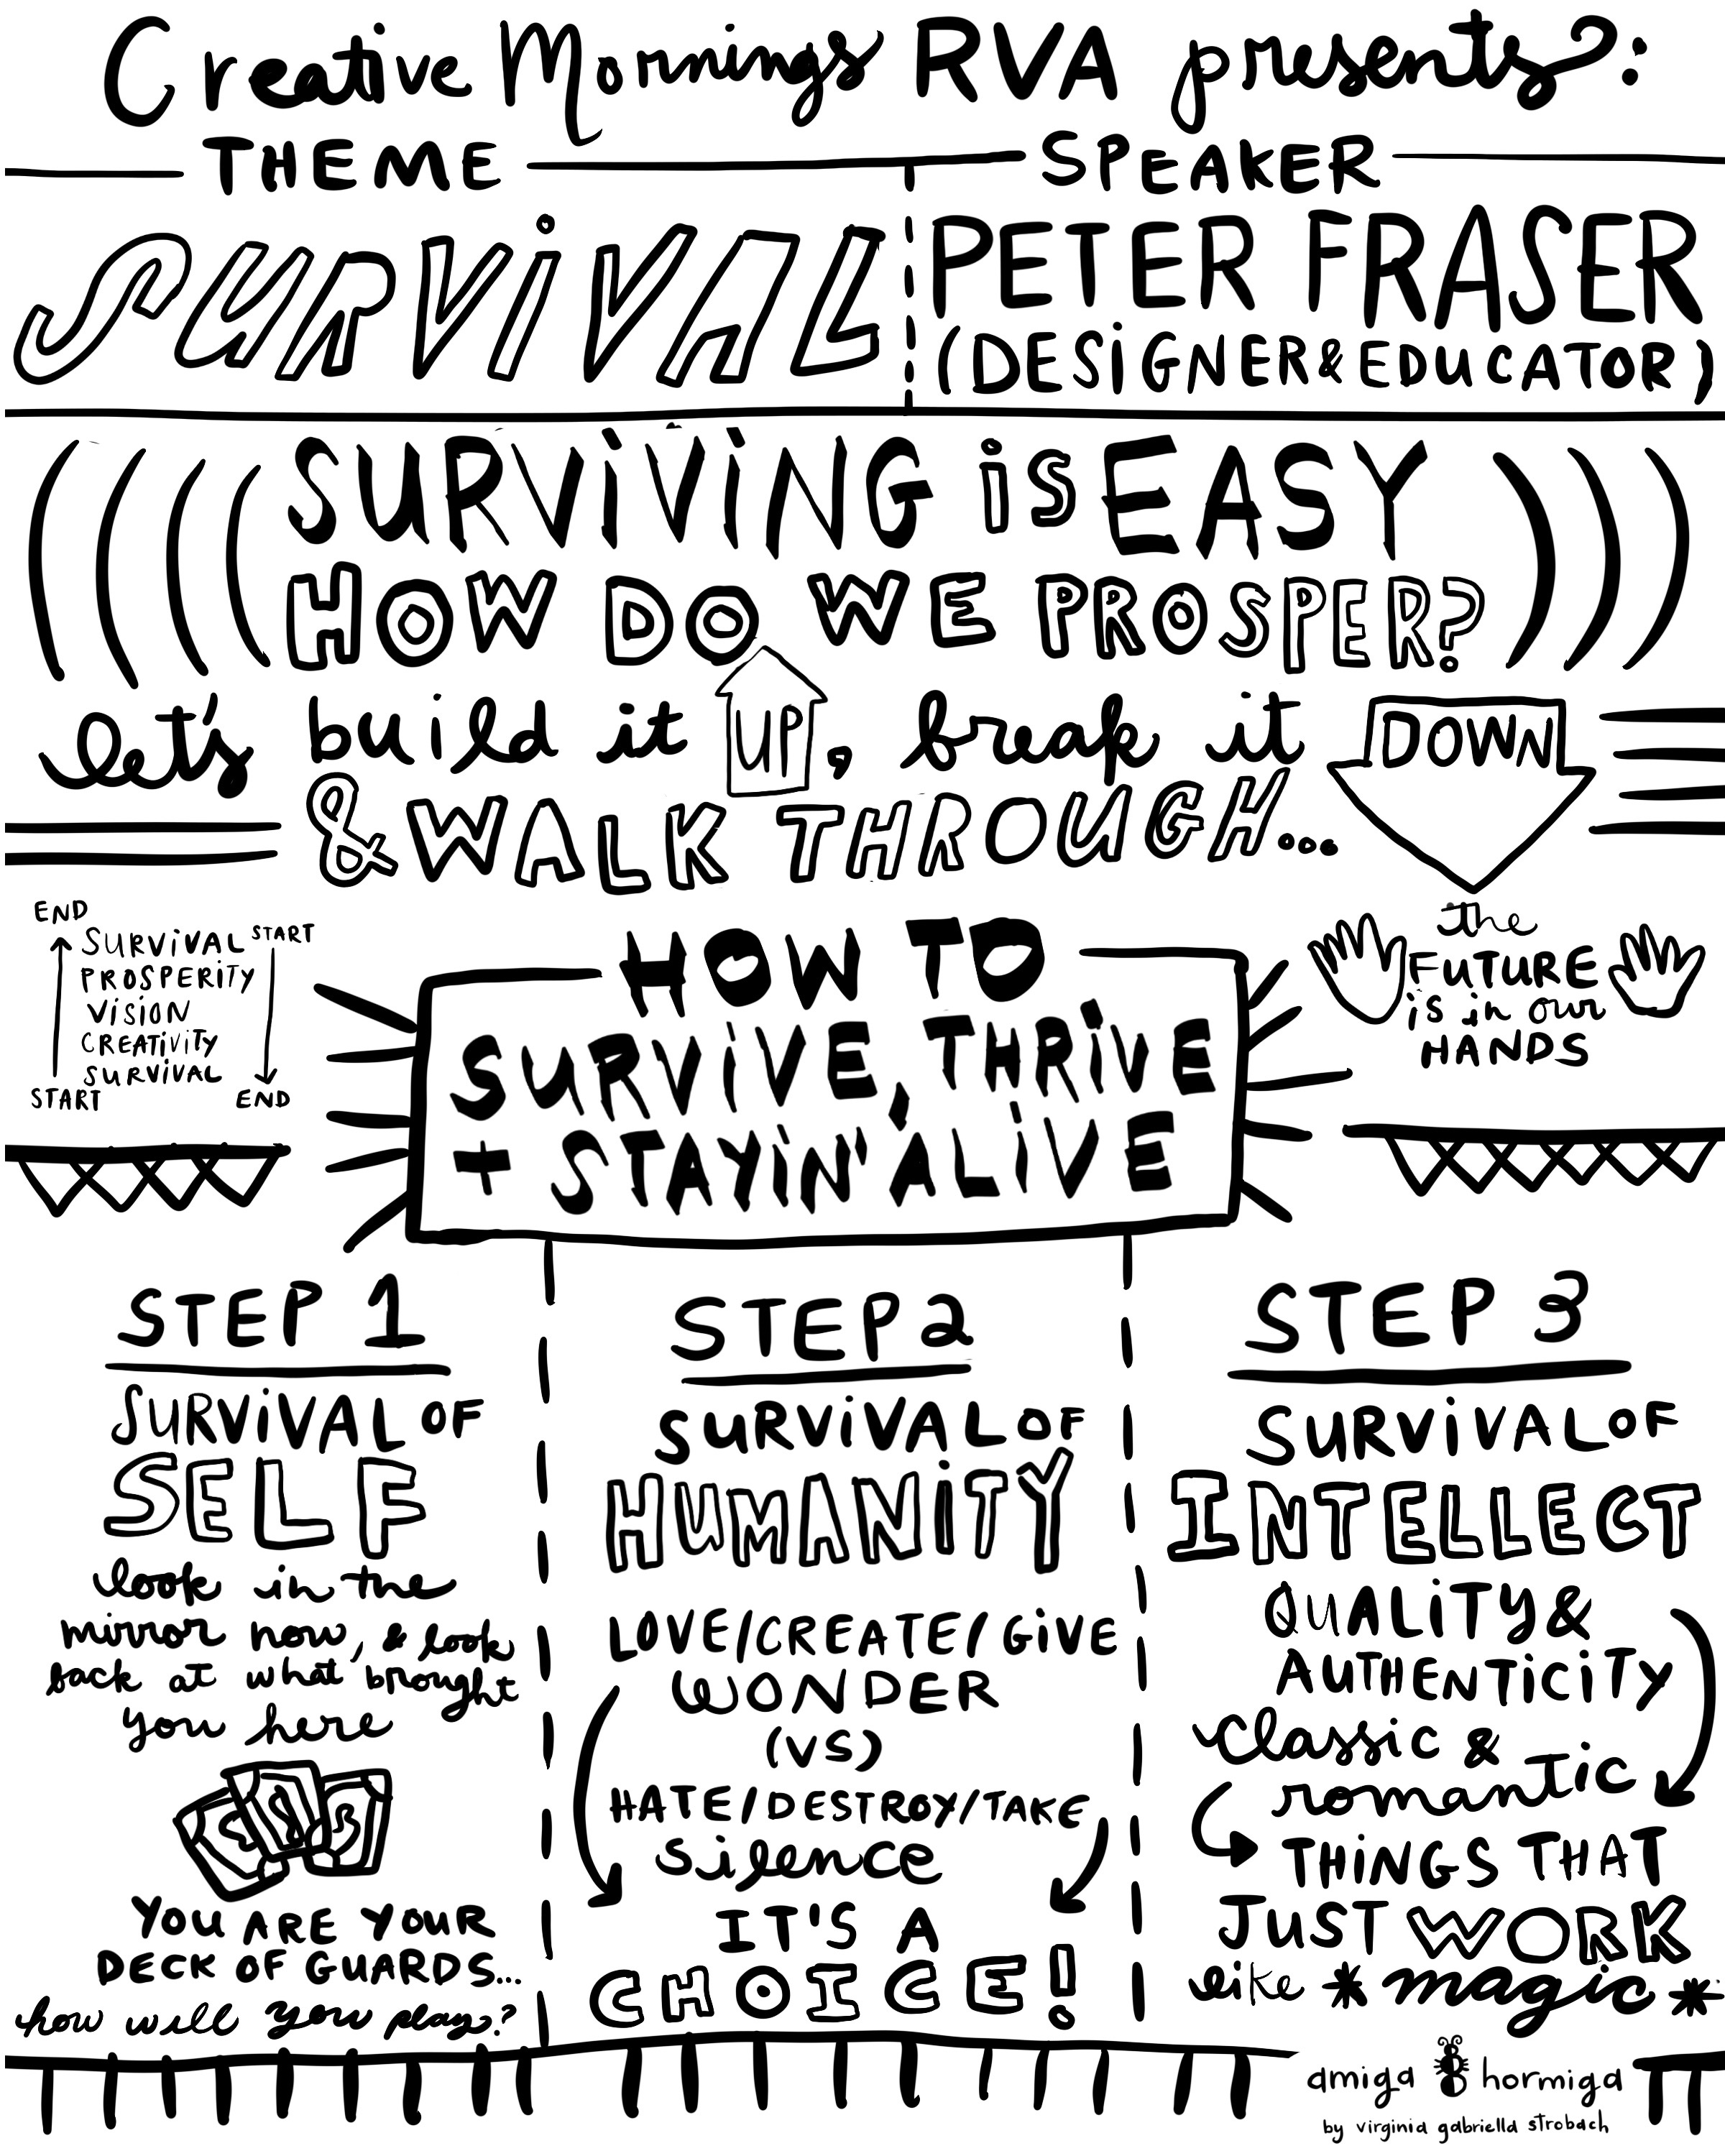 Creative Mornings RVA presents:
THEME
SURViVAL
SPEAKER
PETER FRASER
(DESiGNER & EDUCATOR)
SURViViNG iS EASY
HOW DO WE PROSPER?
let's build it UP, break it DOWN
& WALK THROUGH...
END
START
SURViVAL
PROSPERiTY
ViSiON
CREATiViTY
SURViVAL
START
END
HOW TO
SURViVE, THRiVE
+ STAYiN' ALiVE
the
FUTURE
is in our
HANDS
STEP 1
SURViVAL OF
SELF
look in the
mirror now, & look
back at what brought
you here
YOU ARE YOUR
DECK OF GUARDS...
how will you play?
STEP 2
SURViVAL OF
HUMANiTY
LOVE/CREATE/GiVE
WONDER
(VS)
HATE/DESTROY/TAKE
silence
IT'S A
CHOICE!
STEP 3
SURViVAL OF
INTELLECT
QUALiTY &
AUTHENTiCiTY
classic &
romantic
THiNGS THAT
JUST WORK
like * magic *
amiga hormiga
by virginia gabriella strobach